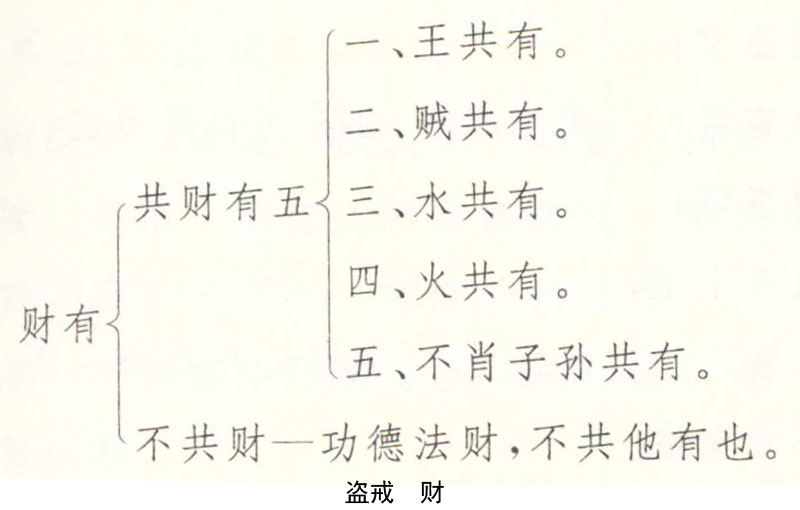 财有
共财有五
一、王共有。
二、贼共有。
三、水共有。
四、火共有。
五、不肖子孙共有。
不共财—功德法财，不共他有也。
盗戒 财